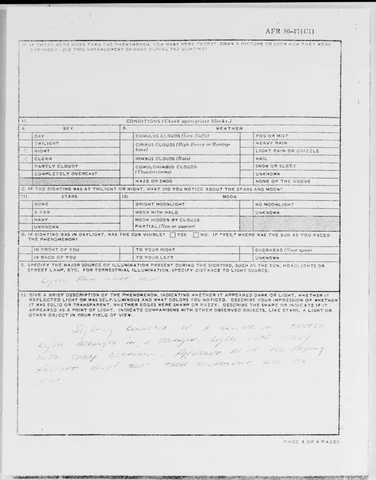 AFR 80-17(C1)
10. IF THERE WERE MORE THAN ONE PHENOMENON, HOW MANY WERE THERE? DRAW A PICTURE TO SHOW HOW THEY WERE
ARRANGED. DID THIS ARRANGEMENT CHANGE DURING THE SIGHTING?
11. CONDITIONS (Check appropriate blocks.)
A. SKY B. WEATHER
DAY CUMULUS CLOUDS (Low fluffy) FOG OR MIST
TWILIGHT CIRRUS CLOUDS (High fleecy or Herring-bone) HEAVY RAIN
NIGHT LIGHT RAIN OR DRIZZLE
CLEAR NIMBUS CLOUDS (Rain) HAIL
PARTLY CLOUDY CUMULONIMBUS CLOUDS (Thunderstorms) SNOW OR SLEET
COMPLETELY OVERCAST UNKNOWN
HAZE OR SMOG NONE OF THE ABOVE
C. IF THE SIGHTING WAS AT TWILIGHT OR NIGHT, WHAT DID YOU NOTICE ABOUT THE STARS AND MOON?
(1) STARS (2) MOON
NONE BRIGHT MOONLIGHT NO MOONLIGHT
A FEW MOON WITH HALO UNKNOWN
MANY MOON HIDDEN BY CLOUDS
UNKNOWN PARTIAL (New or quarter)
D. IF SIGHTING WAS IN DAYLIGHT, WAS THE SUN VISIBLE? YES NO. IF "YES," WHERE WAS THE SUN AS YOU FACED
THE PHENOMENON?
IN FRONT OF YOU TO YOUR RIGHT OVERHEAD (Near noon)
IN BACK OF YOU TO YOUR LEFT UNKNOWN
E. SPECIFY THE MAJOR SOURCE OF ILLUMINATION PRESENT DURING THE SIGHTING, SUCH AS THE SUN, HEADLIGHTS OR
STREET LAMP, ETC. FOR TERRESTRIAL ILLUMINATION, SPECIFY DISTANCE TO LIGHT SOURCE.
12. GIVE A BRIEF DESCRIPTION OF THE PHENOMENON, INDICATING WHETHER IT APPEARED DARK OR LIGHT, WHETHER IT
REFLECTED LIGHT OR WAS SELF-LUMINOUS AND WHAT COLORS YOU NOTICED. DESCRIBE YOUR IMPRESSION OF WHETHER
IT WAS SOLID OR TRANSPARENT, WHETHER EDGES WERE SHARP OR FUZZY. DESCRIBE THE SHAPE OR INDICATE IF IT
APPEARED AS A POINT OF LIGHT. INDICATE COMPARISONS WITH OTHER OBSERVED OBJECTS, LIKE STARS, A LIGHT OR
OTHER OBJECT IN YOUR FIELD OF VIEW.
Sighting consisted of a
lights
PAGE 4 OF 6 PAGES